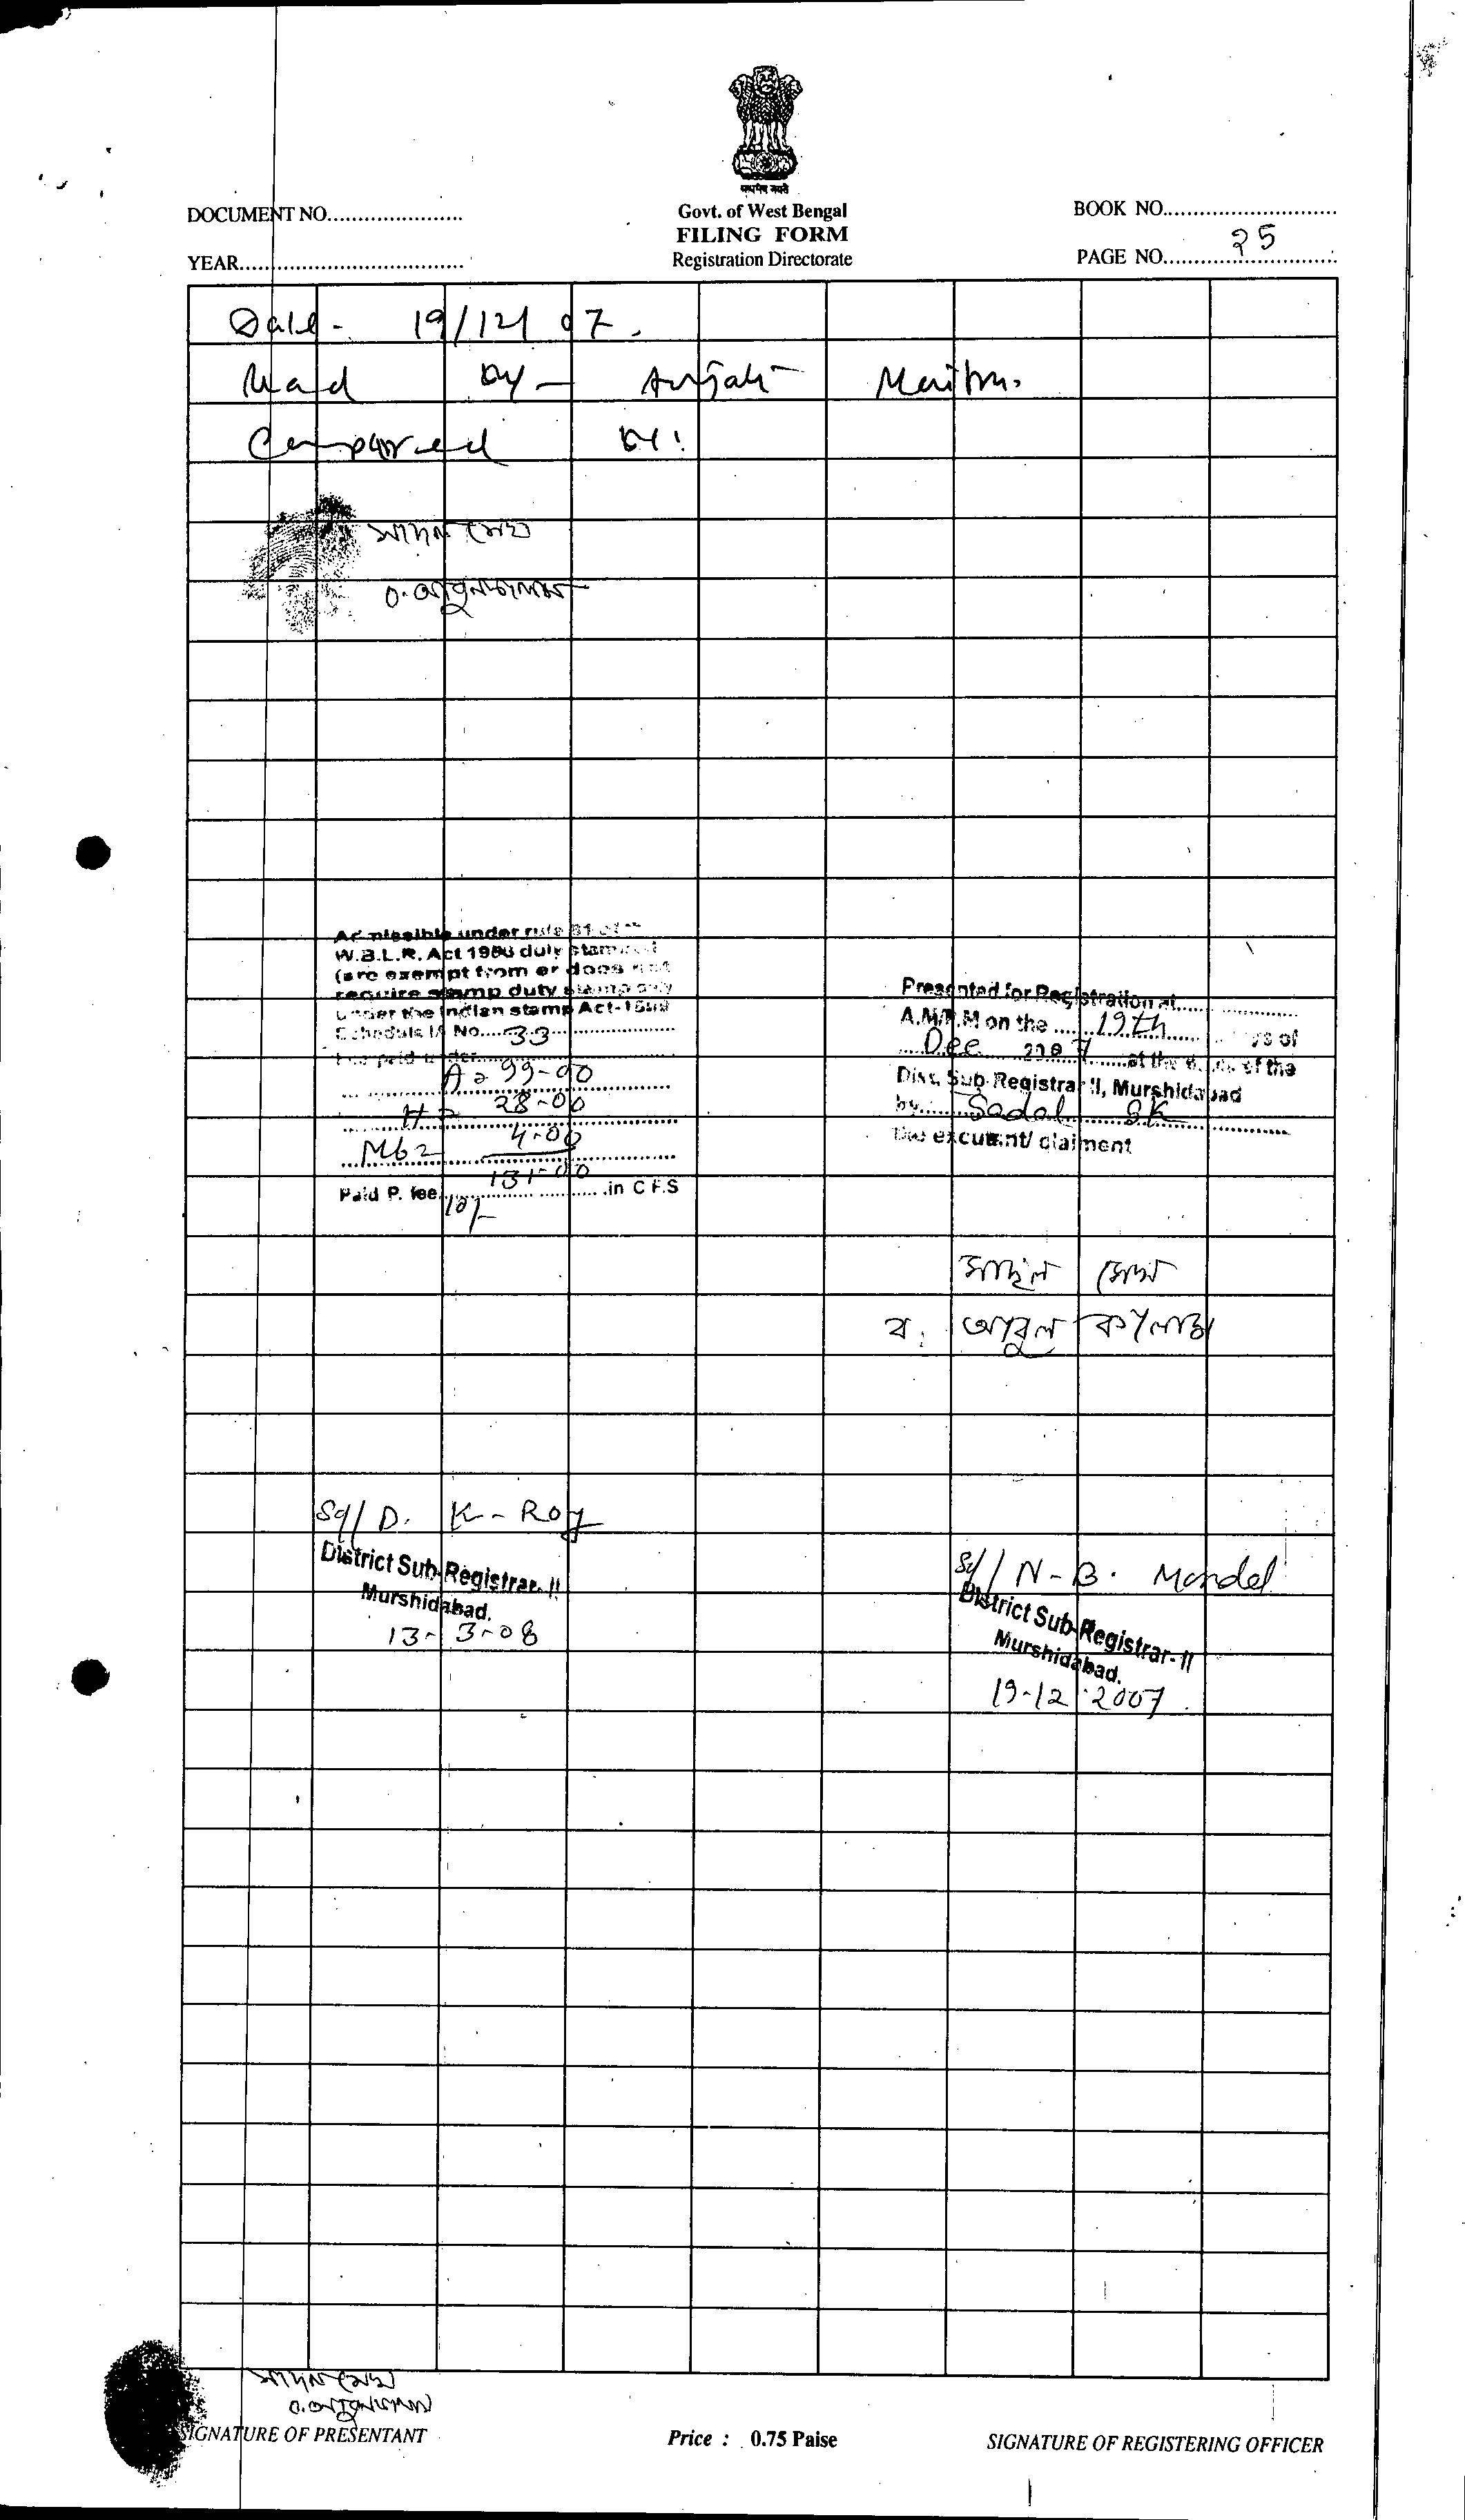 सत्यमेव जयते
DOCUMENT NO......................
Govt. of West Bengal
BOOK NO............................
FILING FORM
YEAR....................................
Registration Directorate
PAGE NO............ 25
Date - 19/12/07.
Read by - Anjali
Compared by:
Admissible under rule 21 of
W.B.L.R. Act 1956 duly stamped
(are exempt from or does not
require stamp duty stamp duty
under the Indian stamp Act-1899
Schedule IA No..... 33
Fee paid under
A = 99-00
H = 28-00
Mb = 4-00
131-00
Paid P. fee 10/- in C F.S
Presented for Registration at
A.M/P.M on the ...... 19th ...... of
Dec 2007 at the of the
Dist. Sub-Registrar II, Murshidabad
by Sadal Sk
the excutant/ claiment
সাদল সেখ
ব. আবুল কালাম
Sd/ D. K-Roy
District Sub-Registrar-II
Murshidabad.
13-3-08
Sd/ N-B. Mondal
District Sub-Registrar-II
Murshidabad.
19-12-2007
SIGNATURE OF PRESENTANT
Price : 0.75 Paise
SIGNATURE OF REGISTERING OFFICER